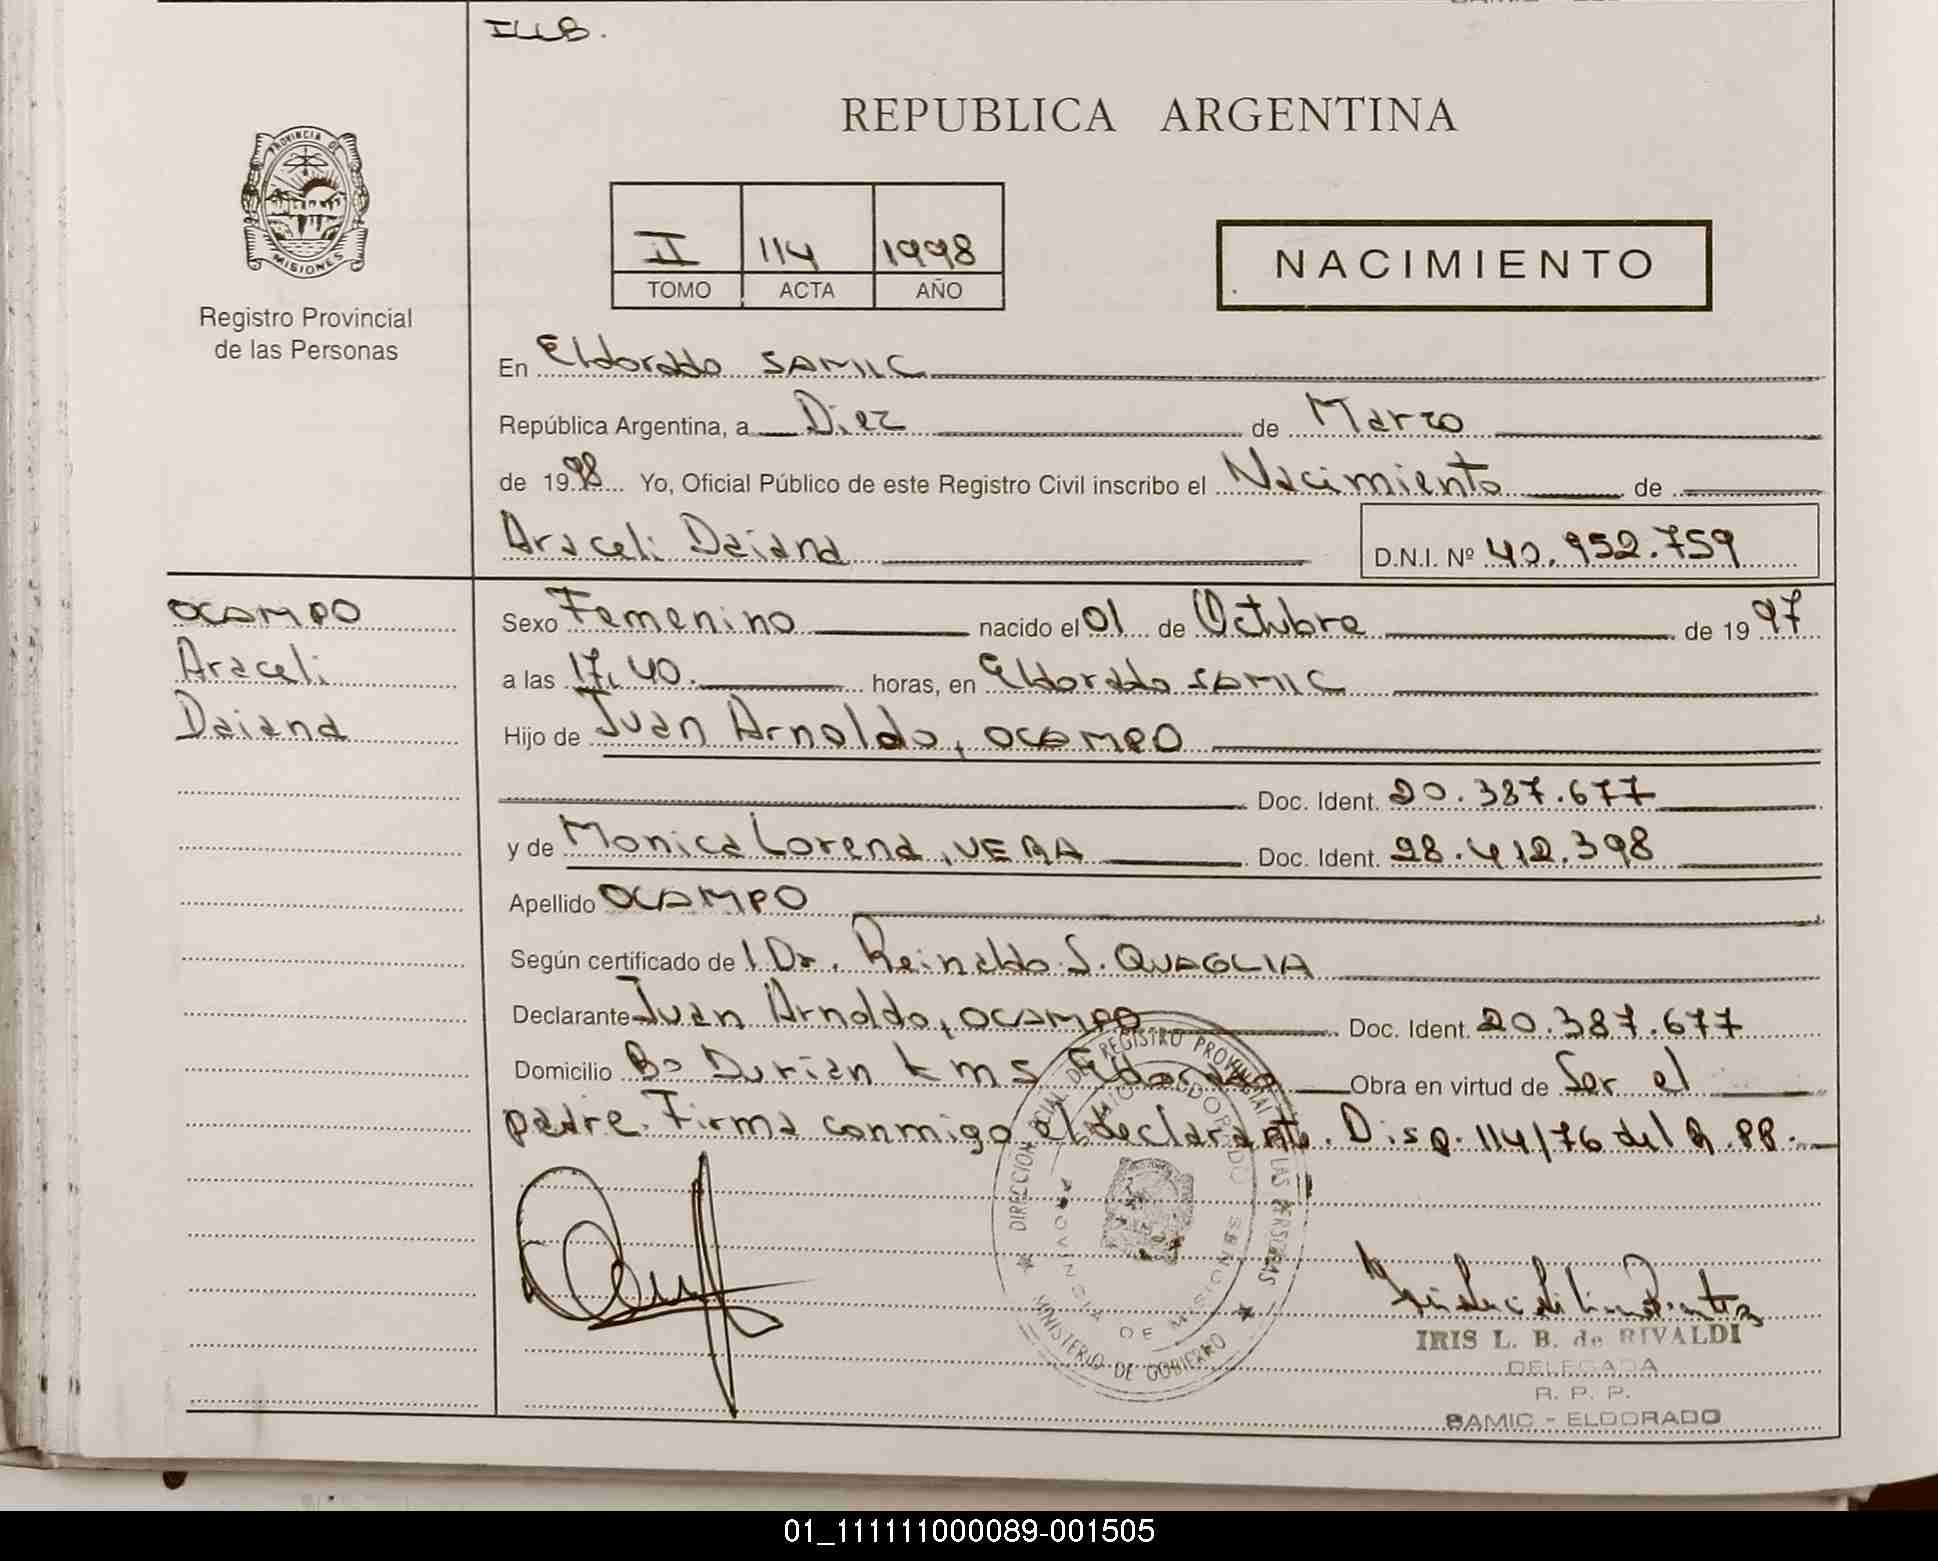 ILLB.
PROVINCIA DE
MISIONES
Registro Provincial
de las Personas
REPUBLICA ARGENTINA
II 114 1998
TOMO ACTA AÑO
NACIMIENTO
En Eldorado SAMIC
República Argentina, a Diez de Marzo
de 1998 Yo, Oficial Público de este Registro Civil inscribo el Nacimiento de
Araceli Daiana D.N.I. Nº 40.952.759
OCAMPO
Araceli
Daiana
Sexo Femenino nacido el 01 de Octubre de 1997
a las 17,40. horas, en Eldorado SAMIC
Hijo de Juan Arnoldo, OCAMPO
Doc. Ident. 20.387.677
y de Monica Lorena, VERA Doc. Ident. 28.412.398
Apellido OCAMPO
Según certificado de l Dr. Reinaldo S. QUAGLIA
Declarante Juan Arnoldo, OCAMPO Doc. Ident. 20.387.677
Domicilio Bo Durian km 5 Eldorado Obra en virtud de Ser el
padre. Firma conmigo el declarante. Disp. 114/76 del R.PP.
DIRECCION DEL REGISTRO PROVINCIAL DE LAS PERSONAS
MINISTERIO DE GOBIERNO
PROVINCIA DE MISIONES
IRIS L. B. de RIVALDI
DELEGADA
R. P. P.
SAMIC - ELDORADO
01_111111000089-001505